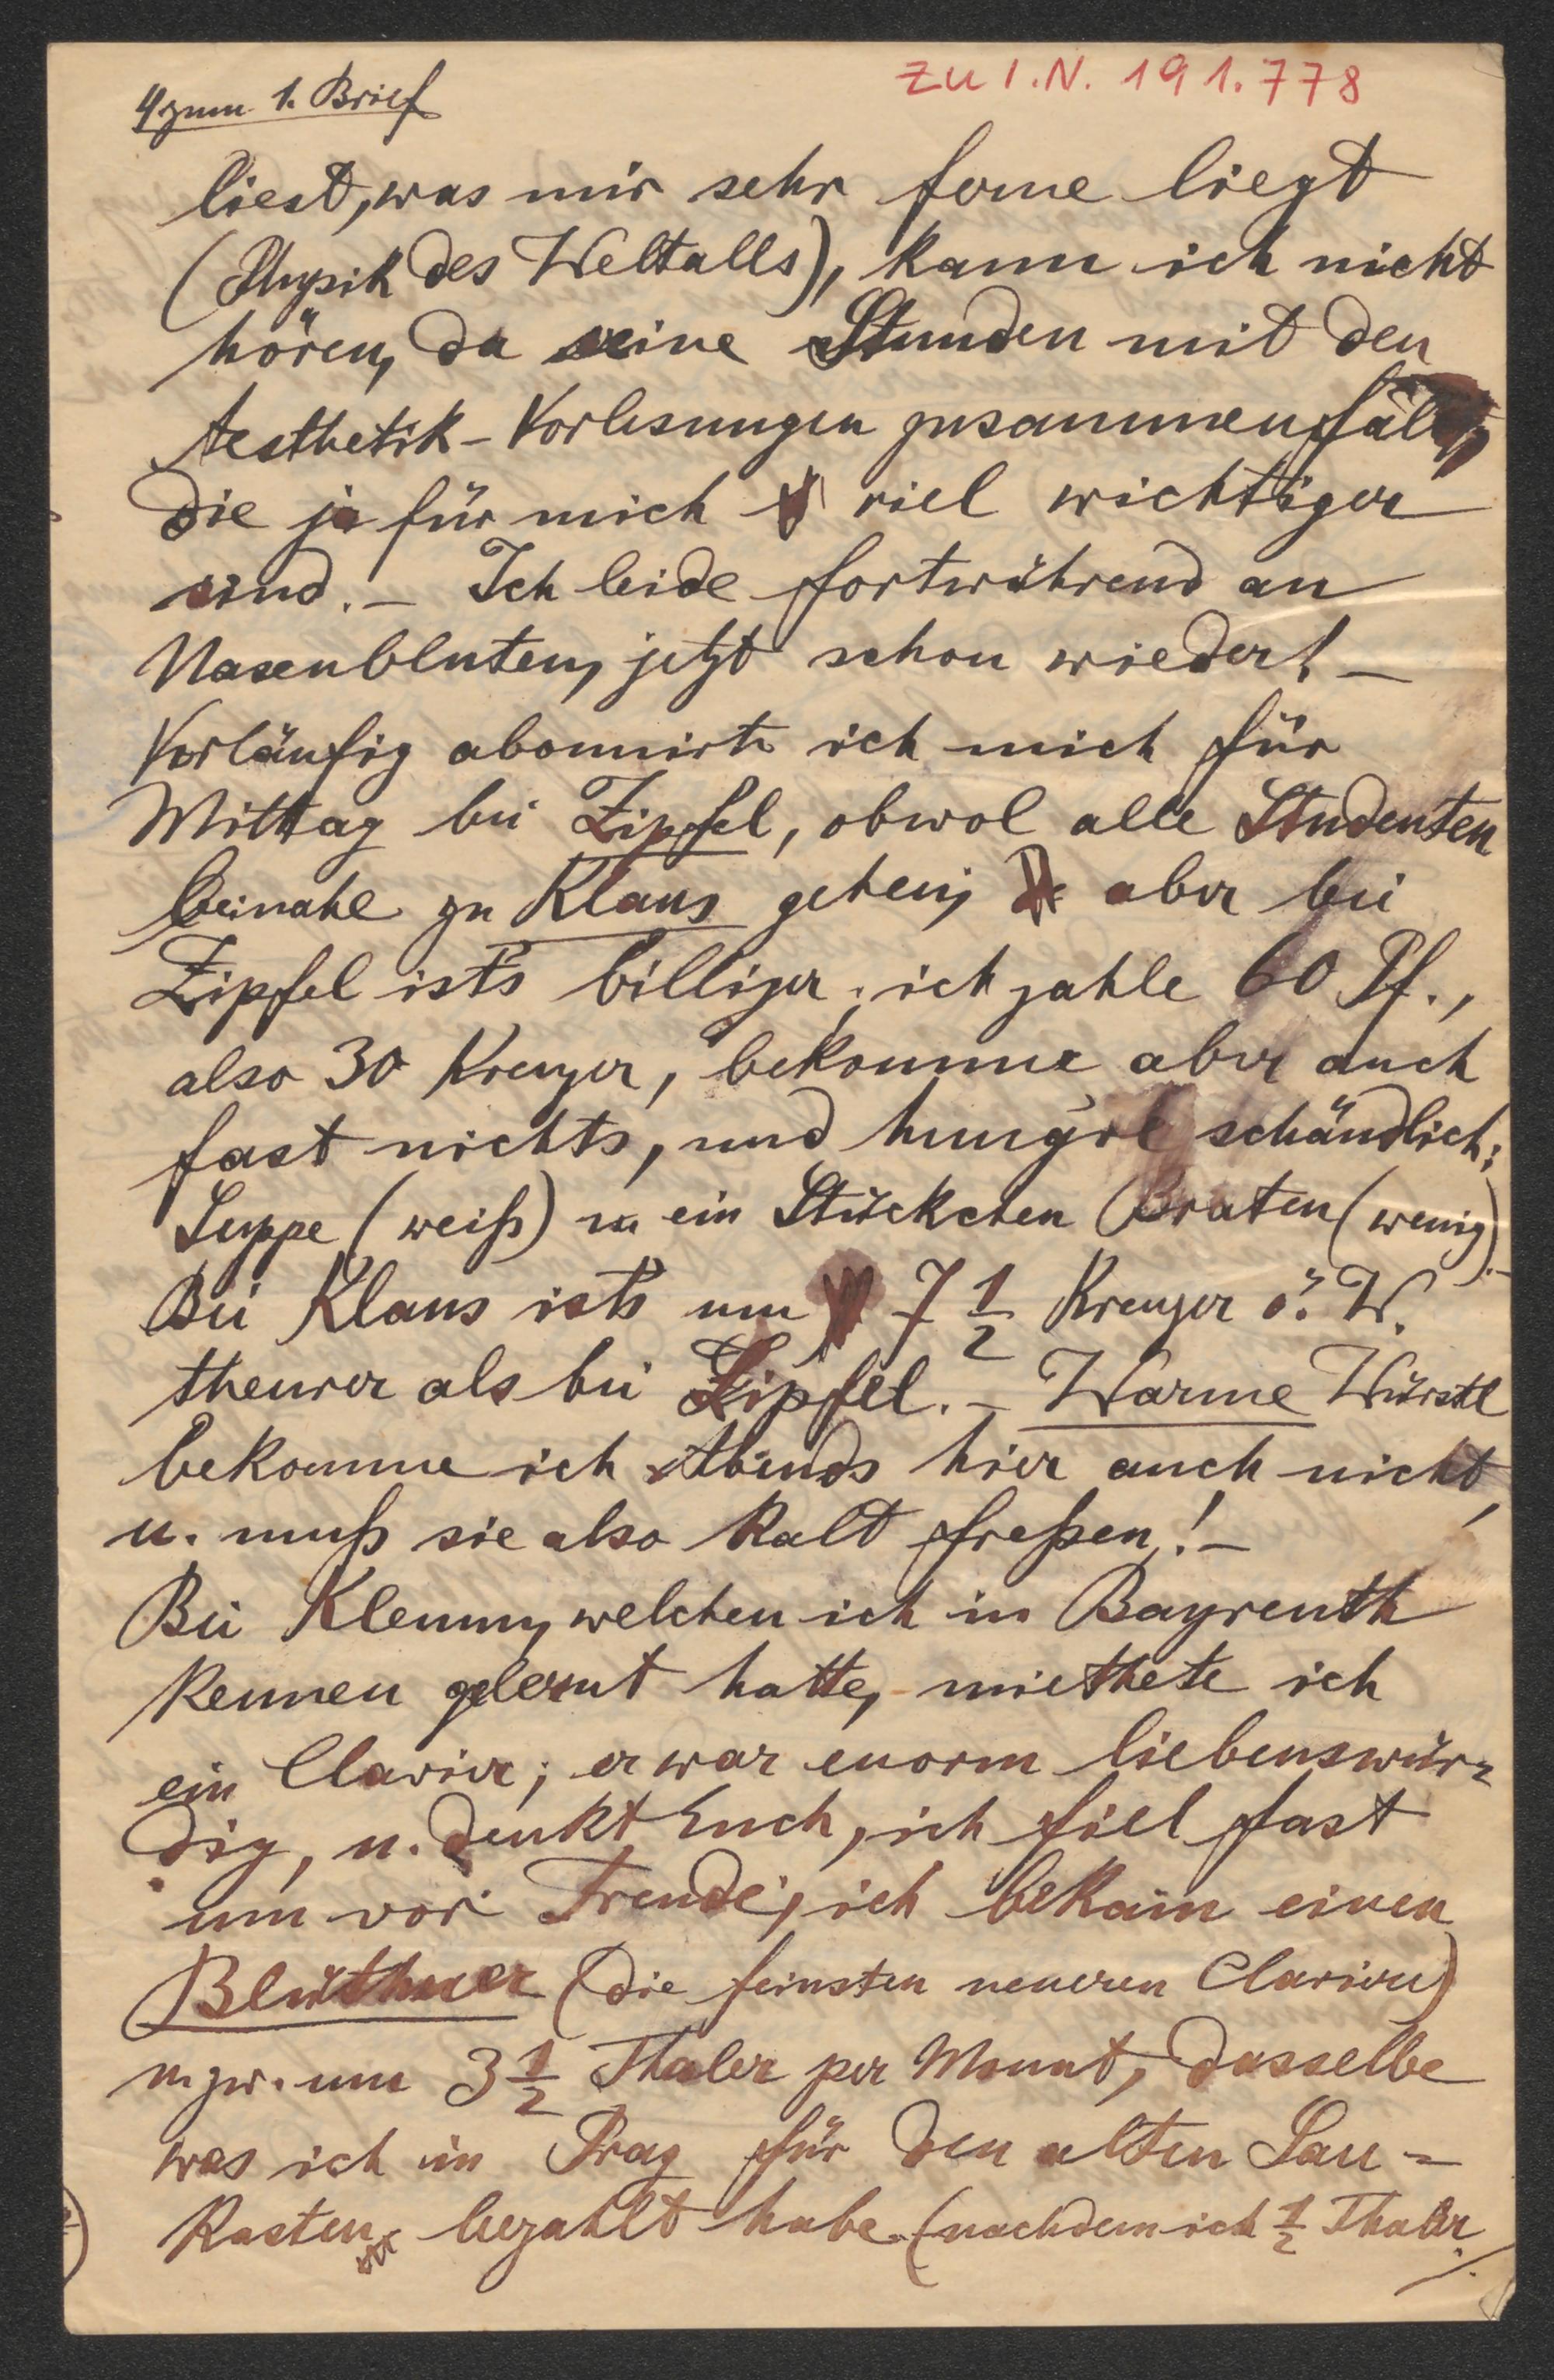 4 zum 1. Brief
ZU I.N. 191.778
liest, was mir sehr ferne liegt
(Physik des Weltalls), kann ich nicht
hören, da seine Stunden mit den
Aesthetik-Vorlesungen zusammenfallen,
die ja für mich viel wichtiger
sind. – Ich leide fortwährend an
Nasenbluten, jetzt schon wieder! –
Vorläufig abonnirte ich mich für
Mittag bei Zipfel, obwol alle Studenten
beinahe zu Klaus gehen; aber bei
Zipfel ist's billiger; ich zahle 60 Pf.,
also 30 Kreuzer, bekomme aber auch
fast nichts, und hung're schändlich;
Suppe (weiß) u. ein Stückchen Braten (wenig). –
Bei Klaus ists um 7 1/2 Kreuzer ö. W.
theurer als bei Zipfel. – Warme Würstl
bekomme ich Abends hier auch nicht,
u. muß sie also kalt freßen! –
Bei Klemm, welchen ich in Bayreuth
kennen gelernt hatte, miethete ich
ein Clavier; er war enorm liebenswür=
dig, u. denkt Euch, ich fiel fast
um vor Freude; ich bekam einen
Blüthner (die feinsten neueren Claviere)
u. zw. um 3 1/2 Thaler per Monat, dasselbe
was ich in Prag für den alten Sau=
kasten bezahlt habe. (nachdem ich 1/2 Thaler